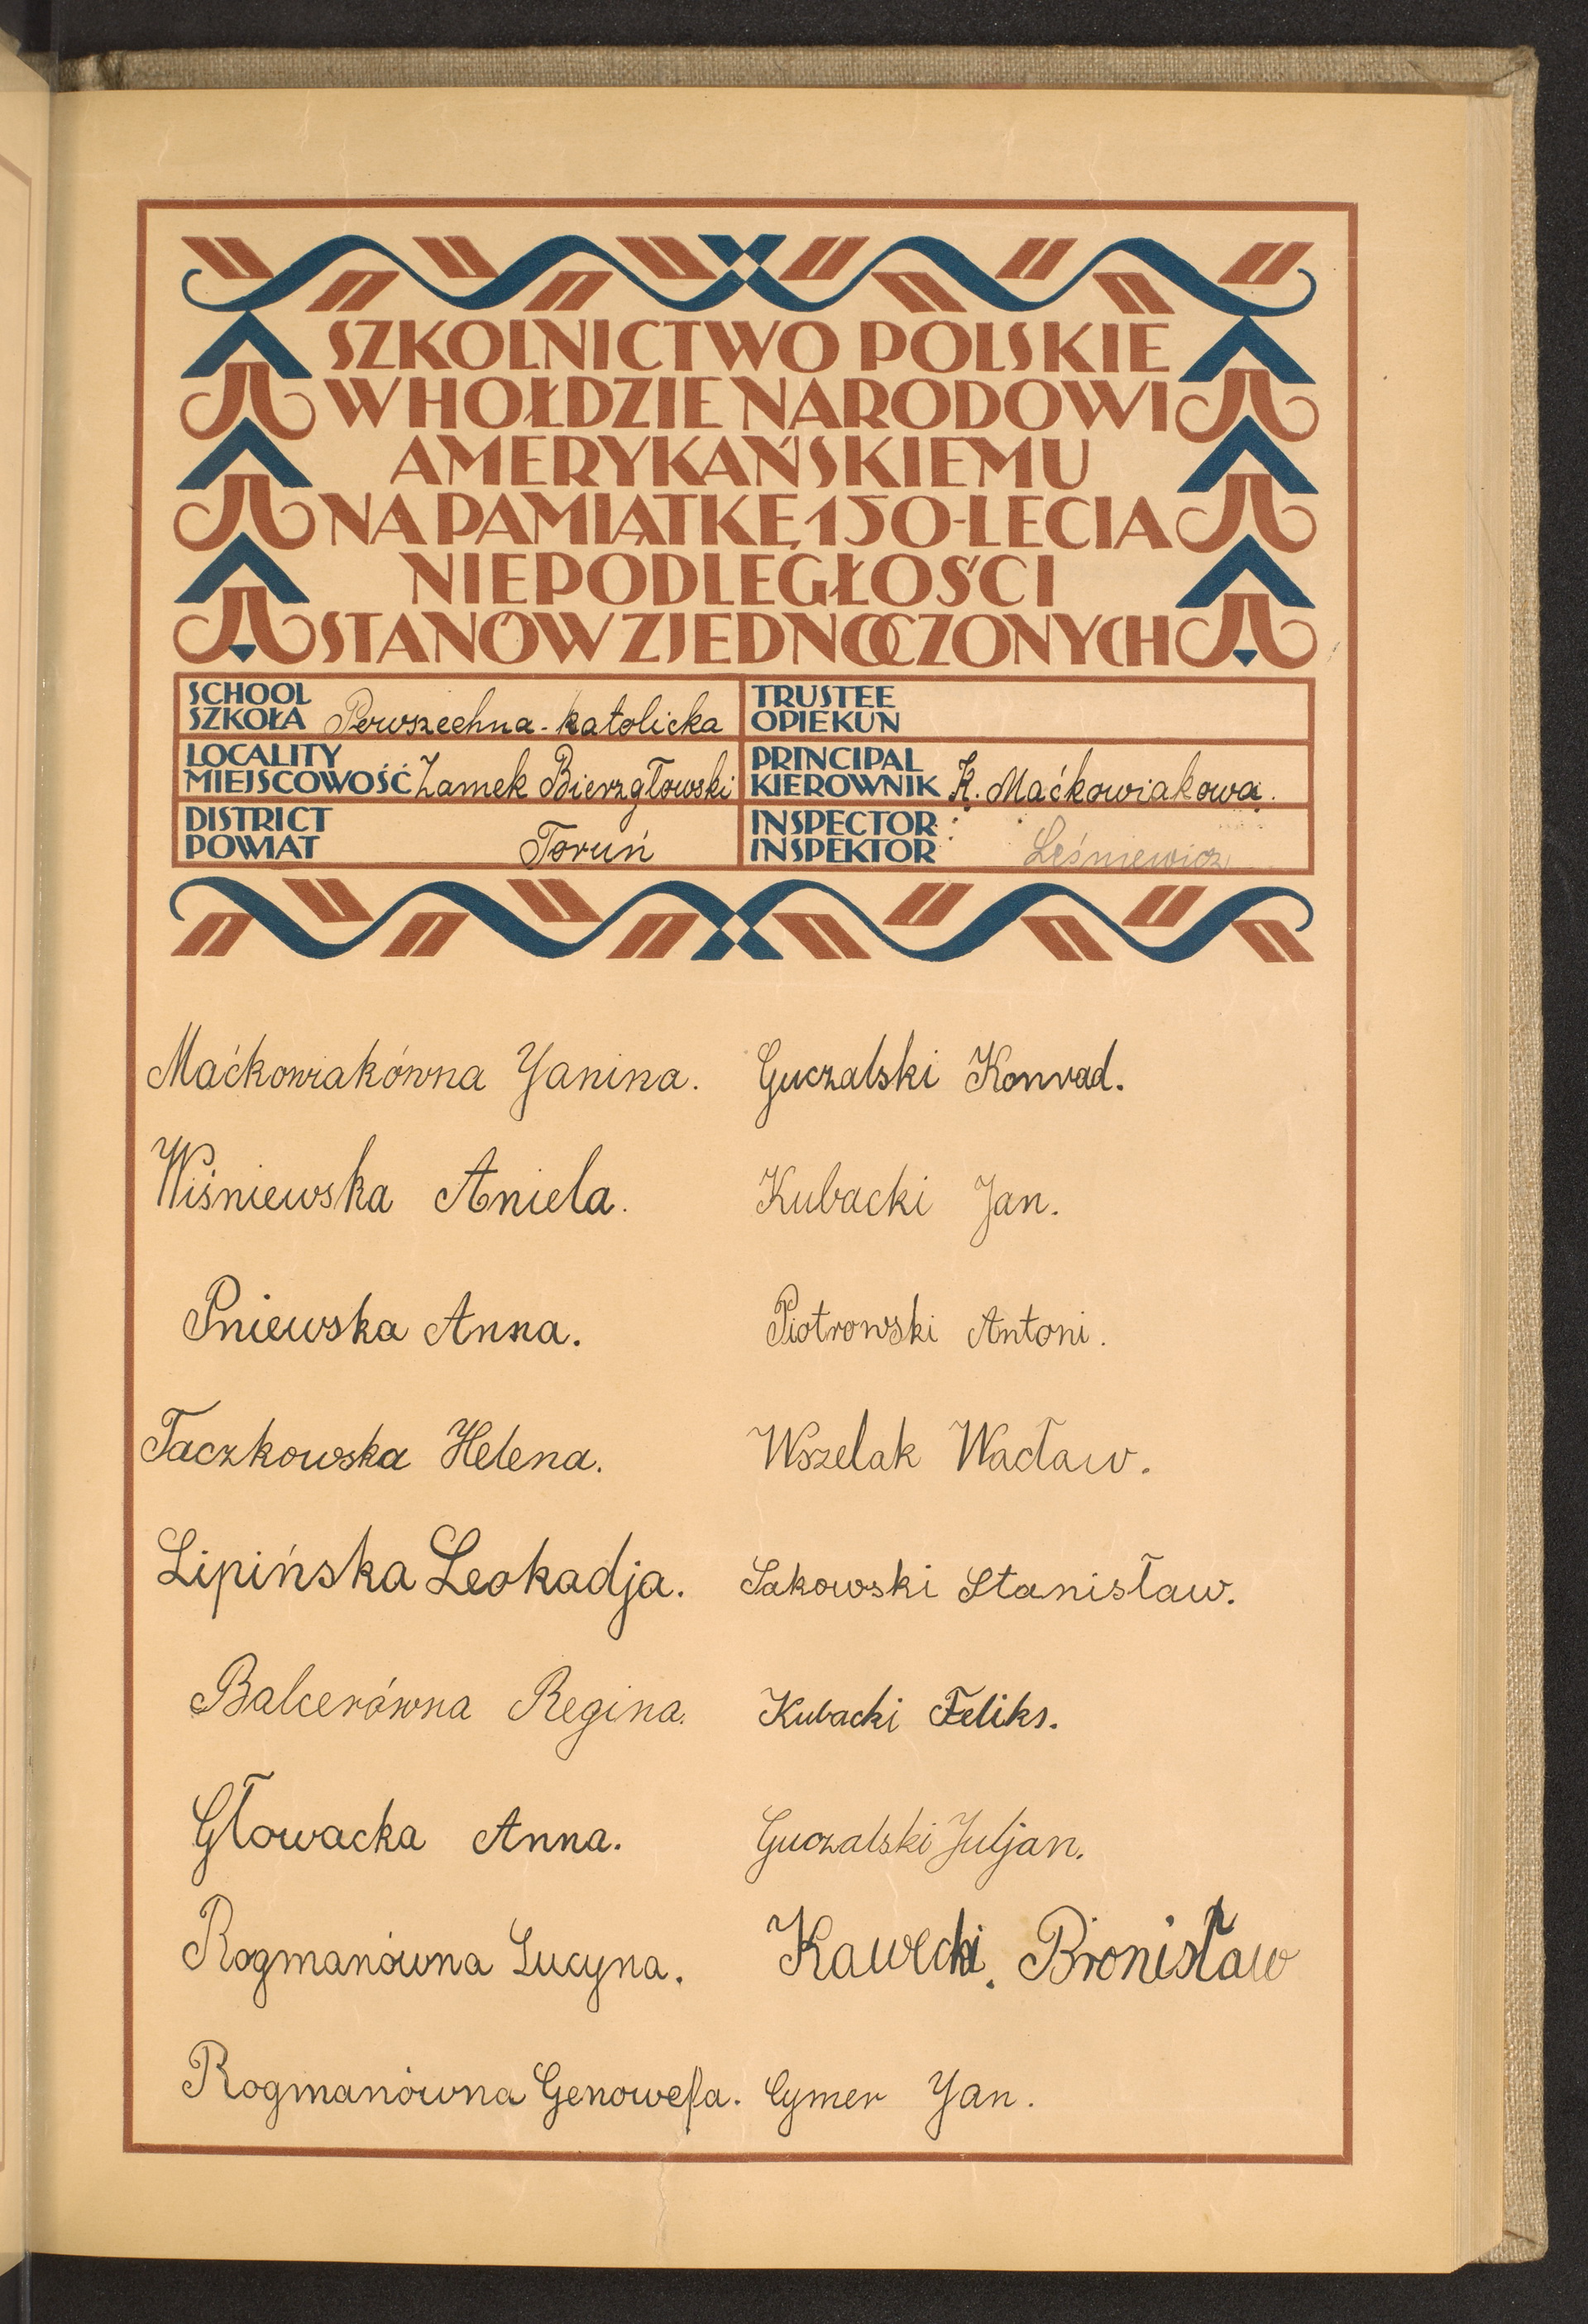 SZKOLNICTWO POLSKIE
W HOŁDZIE NARODOWI
AMERYKAŃSKIEMU
NA PAMIĄTKĘ 150-LECIA
NIEPODLEGŁOŚCI
STANÓW ZJEDNOCZONYCH
SCHOOL
SZKOŁA Powszechna-katolicka
TRUSTEE
OPIEKUN
LOCALITY
MIEJSCOWOŚĆ Zamek Bierzgłowski
PRINCIPAL
KIEROWNIK K. Maćkowiakowa.
DISTRICT
POWIAT Toruń
INSPECTOR
INSPEKTOR Leśniewicz
Maćkowiakówna Yanina.
Wiśniewska Aniela.
Pniewska Anna.
Taczkowska Helena.
Lipińska Leokadja.
Balcerówna Regina.
Głowacka Anna.
Rogmanówna Lucyna.
Rogmanówna Genowefa.
Guczalski Konrad.
Kubacki Jan.
Piotrowski Antoni.
Wszelak Wacław.
Sakowski Stanisław.
Kubacki Feliks.
Guczalski Juljan.
Kawecki. Bronisław
Cymer Yan.